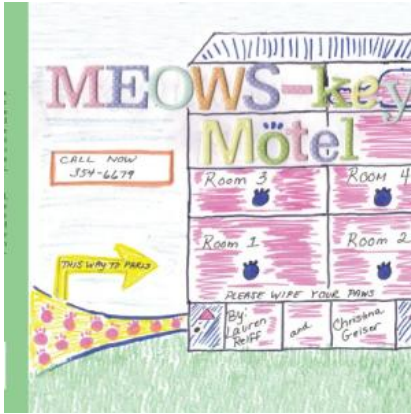 MEOWS-key
Motel
CALL NOW
354-6679
Room 3
Room 4
THIS WAY TO PARIS
Room 1
Room 2
PLEASE WIPE YOUR PAWS
By:
Lauren
Reiff
and
Christina
Geiser